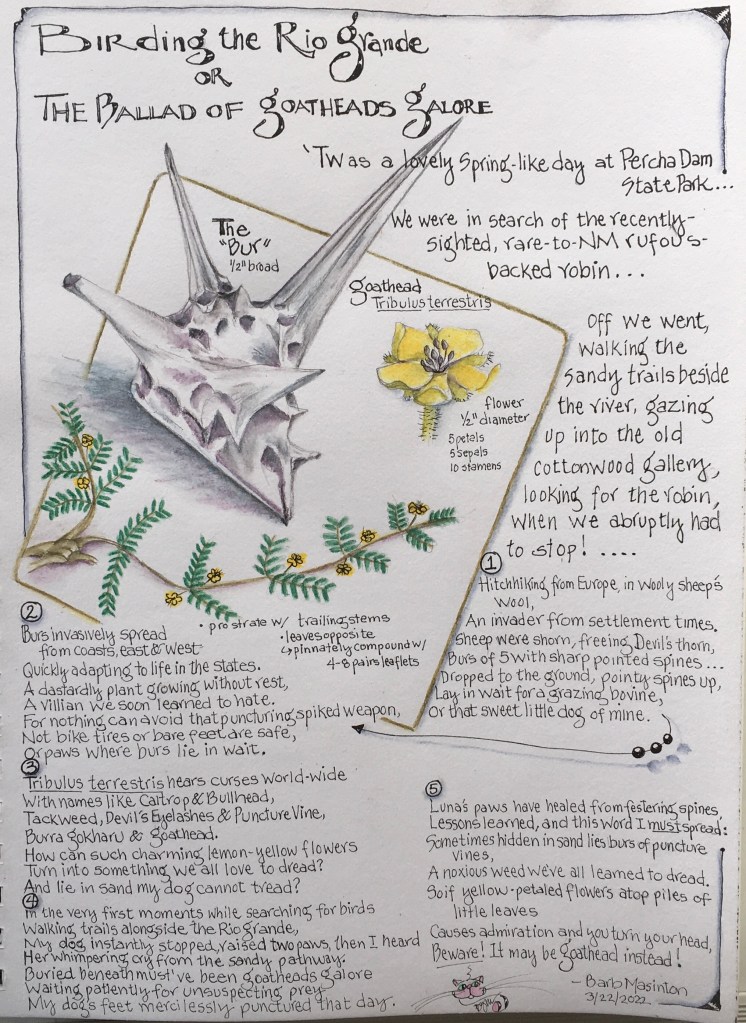 Birding the Rio Grande
OR
THE BALLAD OF goatheads galore
'Twas a lovely Spring-like day at Percha Dam
State Park...
We were in search of the recently-
sighted, rare-to-NM rufous-
backed robin...
The
"Bur"
1/2" broad
goathead
Tribulus terrestris
flower
1/2" diameter
5 petals
5 sepals
10 stamens
Off we went,
walking the
sandy trails beside
the river, gazing
up into the old
cottonwood gallery,
looking for the robin,
when we abruptly had
to stop! ....
• prostrate w/ trailing stems
• leaves opposite
↳ pinnately compound w/
4-8 pairs leaflets
1
Hitchhiking from Europe, in wooly sheep's
wool,
An invader from settlement times.
Sheep were shorn, freeing Devil's thorn,
Burs of 5 with sharp pointed spines...
Dropped to the ground, pointy spines up,
Lay in wait for a grazing bovine,
Or that sweet little dog of mine.
2
Burs invasively spread
from coasts, east & west
Quickly adapting to life in the states.
A dastardly plant growing without rest,
A villian we soon learned to hate.
For nothing can avoid that puncturing spiked weapon,
Not bike tires or bare feet are safe,
Or paws where burs lie in wait.
3
Tribulus terrestris hears curses world-wide
With names like Caltrop & Bullhead,
Tackweed, Devil's Eyelashes & Puncture Vine,
Burra gokharu & goathead.
How can such charming lemon-yellow flowers
Turn into something we all love to dread?
And lie in sand my dog cannot tread?
4
In the very first moments while searching for birds
Walking trails alongside the Rio grande,
My dog instantly stopped, raised two paws, then I heard
Her whimpering cry from the sandy pathway.
Buried beneath must've been goatheads galore
Waiting patiently for unsuspecting prey
My dog's feet mercilessly punctured that day.
5
Luna's paws have healed from festering spines,
Lessons learned, and this word I must spread:
Sometimes hidden in sand lies burs of puncture
vines,
A noxious weed we've all learned to dread.
So if yellow-petaled flowers atop piles of
little leaves
Causes admiration and you turn your head,
Beware! It may be goathead instead!
- Barb Masinton
3/22/2022